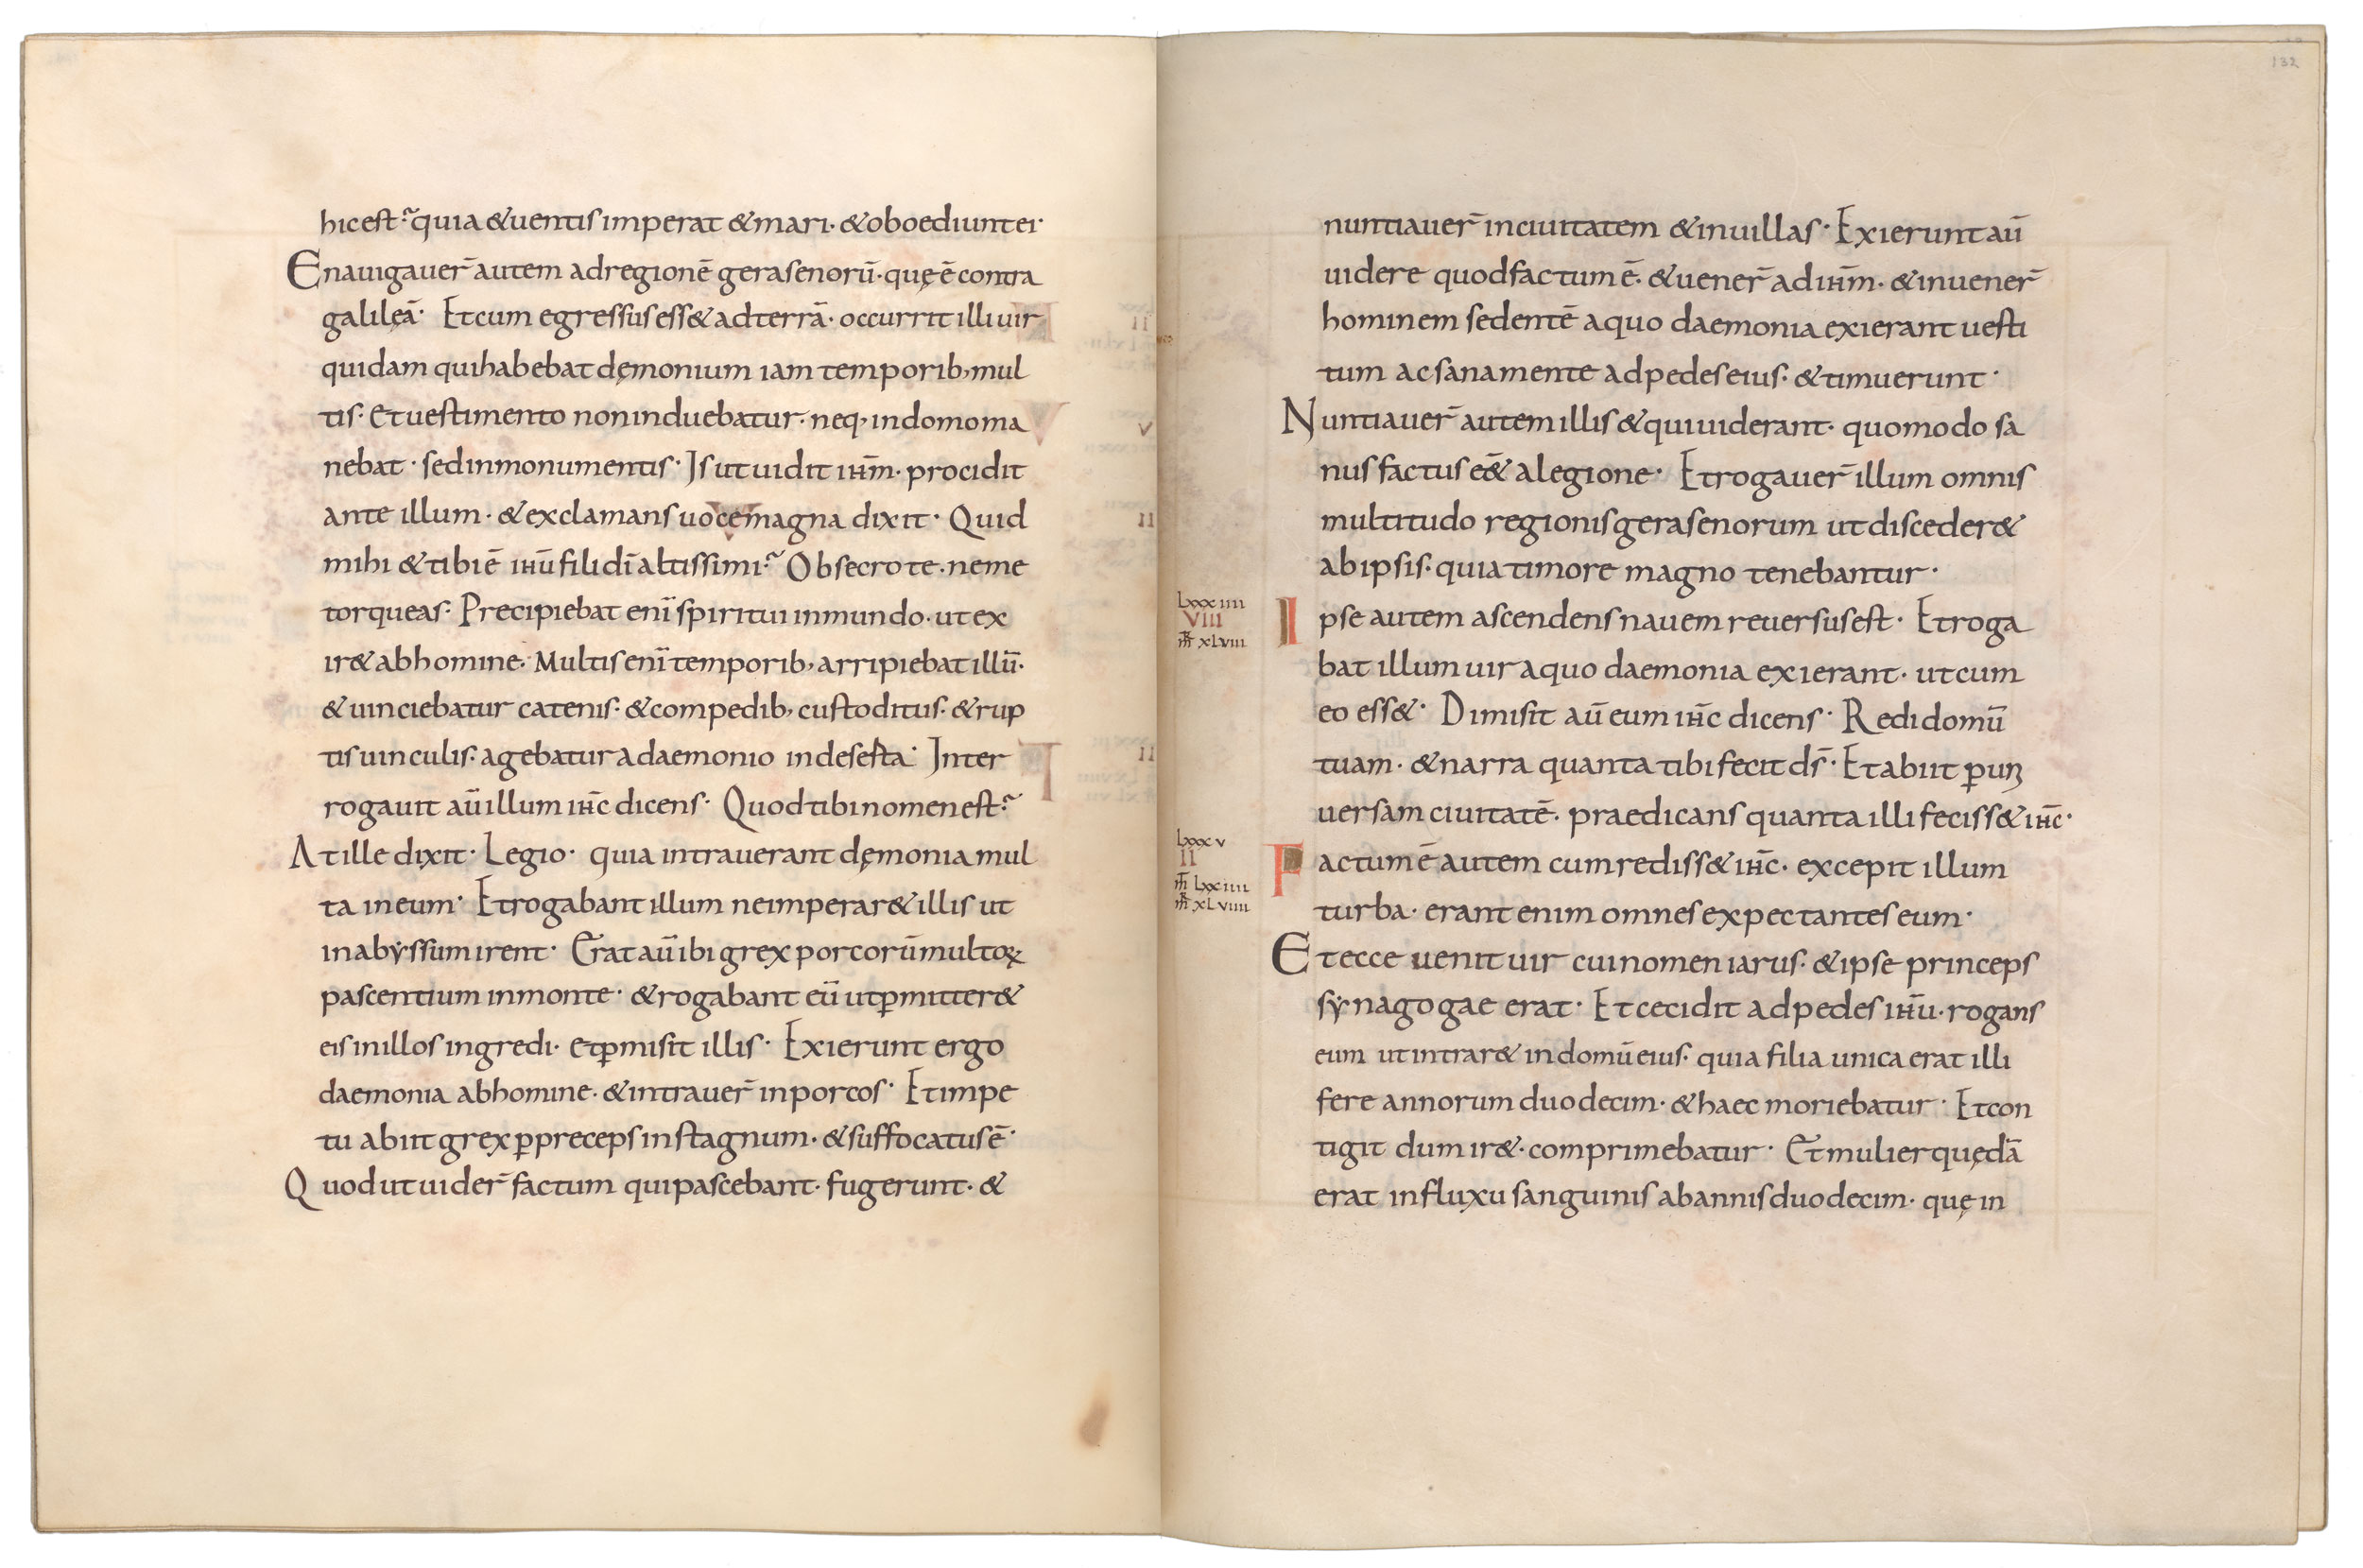 hic est? quia & uentis imperat & mari· & oboediunt ei·
Enauigauer̄ autem ad regionē gerasenorū· quę ē contra
galileā· Et cum egressus ess& ad terrā· occurrit illi uir
quidam qui habebat dęmonium iam temporib; mul
tis· Et uestimento non induebatur· neq; in domo ma
nebat· sed in monumentis· Is ut uidit ihm̄· procidit
ante illum· & exclamans uoce magna dixit· Quid
mihi & tibi ē ihū fili dī altissimi? Obsecro te· ne me
torqueas· Precipiebat enī spiritui inmundo· ut ex
ir& ab homine· Multis enī temporib; arripiebat illū·
& uinciebatur catenis· & compedib; custoditus· & rup
tis uinculis· agebatur a daemonio in deserta· Inter
rogauit aū illum ihc̄ dicens· Quod tibi nomen est?
At ille dixit· Legio· quia intrauerant dęmonia mul
ta in eum· Et rogabant illum ne imperar& illis ut
in abyssum irent· Erat aū ibi grex porcorū multoꝝ
pascentium in monte· & rogabant eū ut ꝑmitter&
eis in illos ingredi· Et ꝑmisit illis· Exierunt ergo
daemonia ab homine· & intrauer̄ in porcos· Et impe
tu abiit grex ꝑ preceps in stagnum· & suffocatus ē·
Quod ut uider̄ factum qui pascebant· fugerunt· &
132
nuntiauer̄ in ciuitatem & in uillas· Exierunt aū
uidere quod factum ē· & uener̄ ad ihm̄· & inuener̄
hominem sedentē a quo daemonia exierant uesti
tum ac sana mente ad pedes eius· & timuerunt·
Nuntiauer̄ autem illis & qui uiderant· quomodo sa
nus factus e& a legione· Et rogauer̄ illum omnis
multitudo regionis gerasenorum ut disceder&
ab ipsis· quia timore magno tenebantur·
Lxxxiiii
VIII
m̄r xLviii
Ipse autem ascendens nauem reuersus est· Et roga
bat illum uir a quo daemonia exierant· ut cum
eo ess&· Dimisit aū eum ihc̄ dicens· Redi domū
tuam· & narra quanta tibi fecit ds̄· Et abiit ꝑ uni
uersam ciuitatē· praedicans quanta illi feciss& ihc̄·
Lxxxv
II
m̄t Lxxiiii
m̄r xLviiii
Factum ē autem cum rediss& ihc̄· excepit illum
turba· erant enim omnes expectantes eum·
Et ecce uenit uir cui nomen iarus· & ipse princeps
synagogae erat· Et cecidit ad pedes ihū· rogans
eum ut intrar& in domū eius· quia filia unica erat illi
fere annorum duodecim· & haec moriebatur· Et con
tigit dum ir&· comprimebatur· Et mulier quędā
erat in fluxu sanguinis ab annis duodecim· quę in